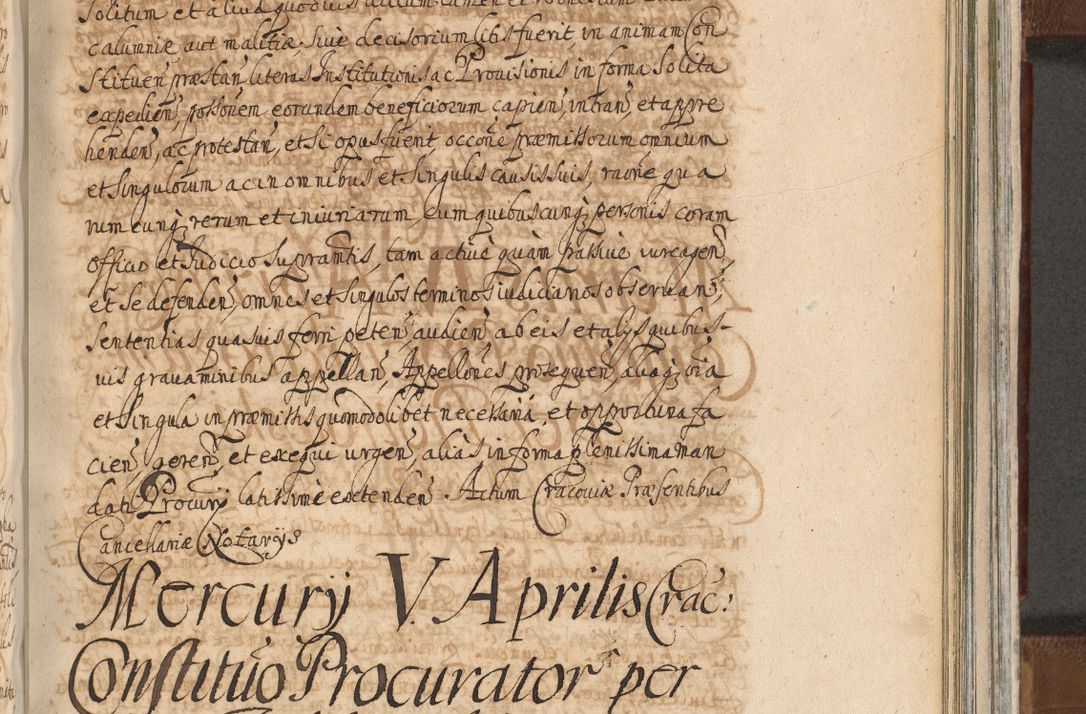 Solitum et aliud quodvis licitum tamen et
calumniæ aut malitiæ sive decisorium litis fuerit, in animam Con
stituen̄ præstan̄ literas Institutionis ac Provisionis in forma Solita
expedien̄, possonem eorundem beneficiorum capien̄, intran̄, et appre
henden̄, ac protestan̄, et Si opus fuerit occõne præmissorum omnium
et Singulorum ac in omnibus et Singulis causis suis, raõne qua
rumcunq; rerum et iniuriarum, cum quibuscunq; personis coram
officio et Iudicio Supramtis, tam active quàm passive iure agen̄,
et se defenden̄, omnes et Singulos terminos iudicianos observan̄,
Sententias quasuis ferri peten̄ audien̄ ab eis et alijs quibus-
vis gravaminibus appellan̄, Appellones prosequen̄, aliaq; oĩa
et Singula in præmissis quomodolibet necessaria, et opportuna fa
cien̄, geren̄, et exequi urgen̄, aliàs in forma plenissima man
dati Procurij latissimè extenden̄. Actum Cracoviæ Præsentibus
Cancellariæ Notarijs
Mercurij V. Aprilis Crac:
Constitūo Procurator̄ per